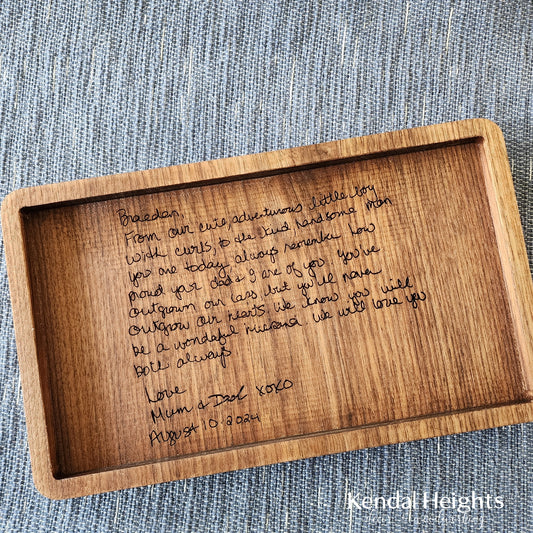 Braedan,
From our cute, adventurous little boy
with curls, to the kind, handsome man
you are today, always remember how
proud your dad & I are of you. You've
outgrown our laps, but you'll never
outgrow our hearts. We know you will
be a wonderful husband. We will love you
both always.
Love
Mum & Dad xoxo
August 10. 2024
Kendal Heights